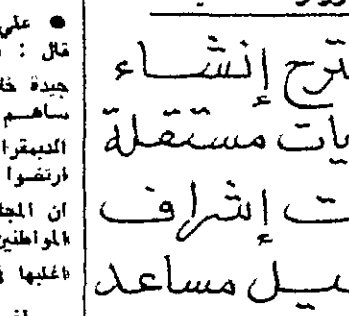 ترح إنشاء
يات مستقلة
ت إشراف
يل مساعد
● علي
قال :
جيدة
ساهم
الديمقرا
ارتضوا
ان المجا
المواطنين
اغلبها